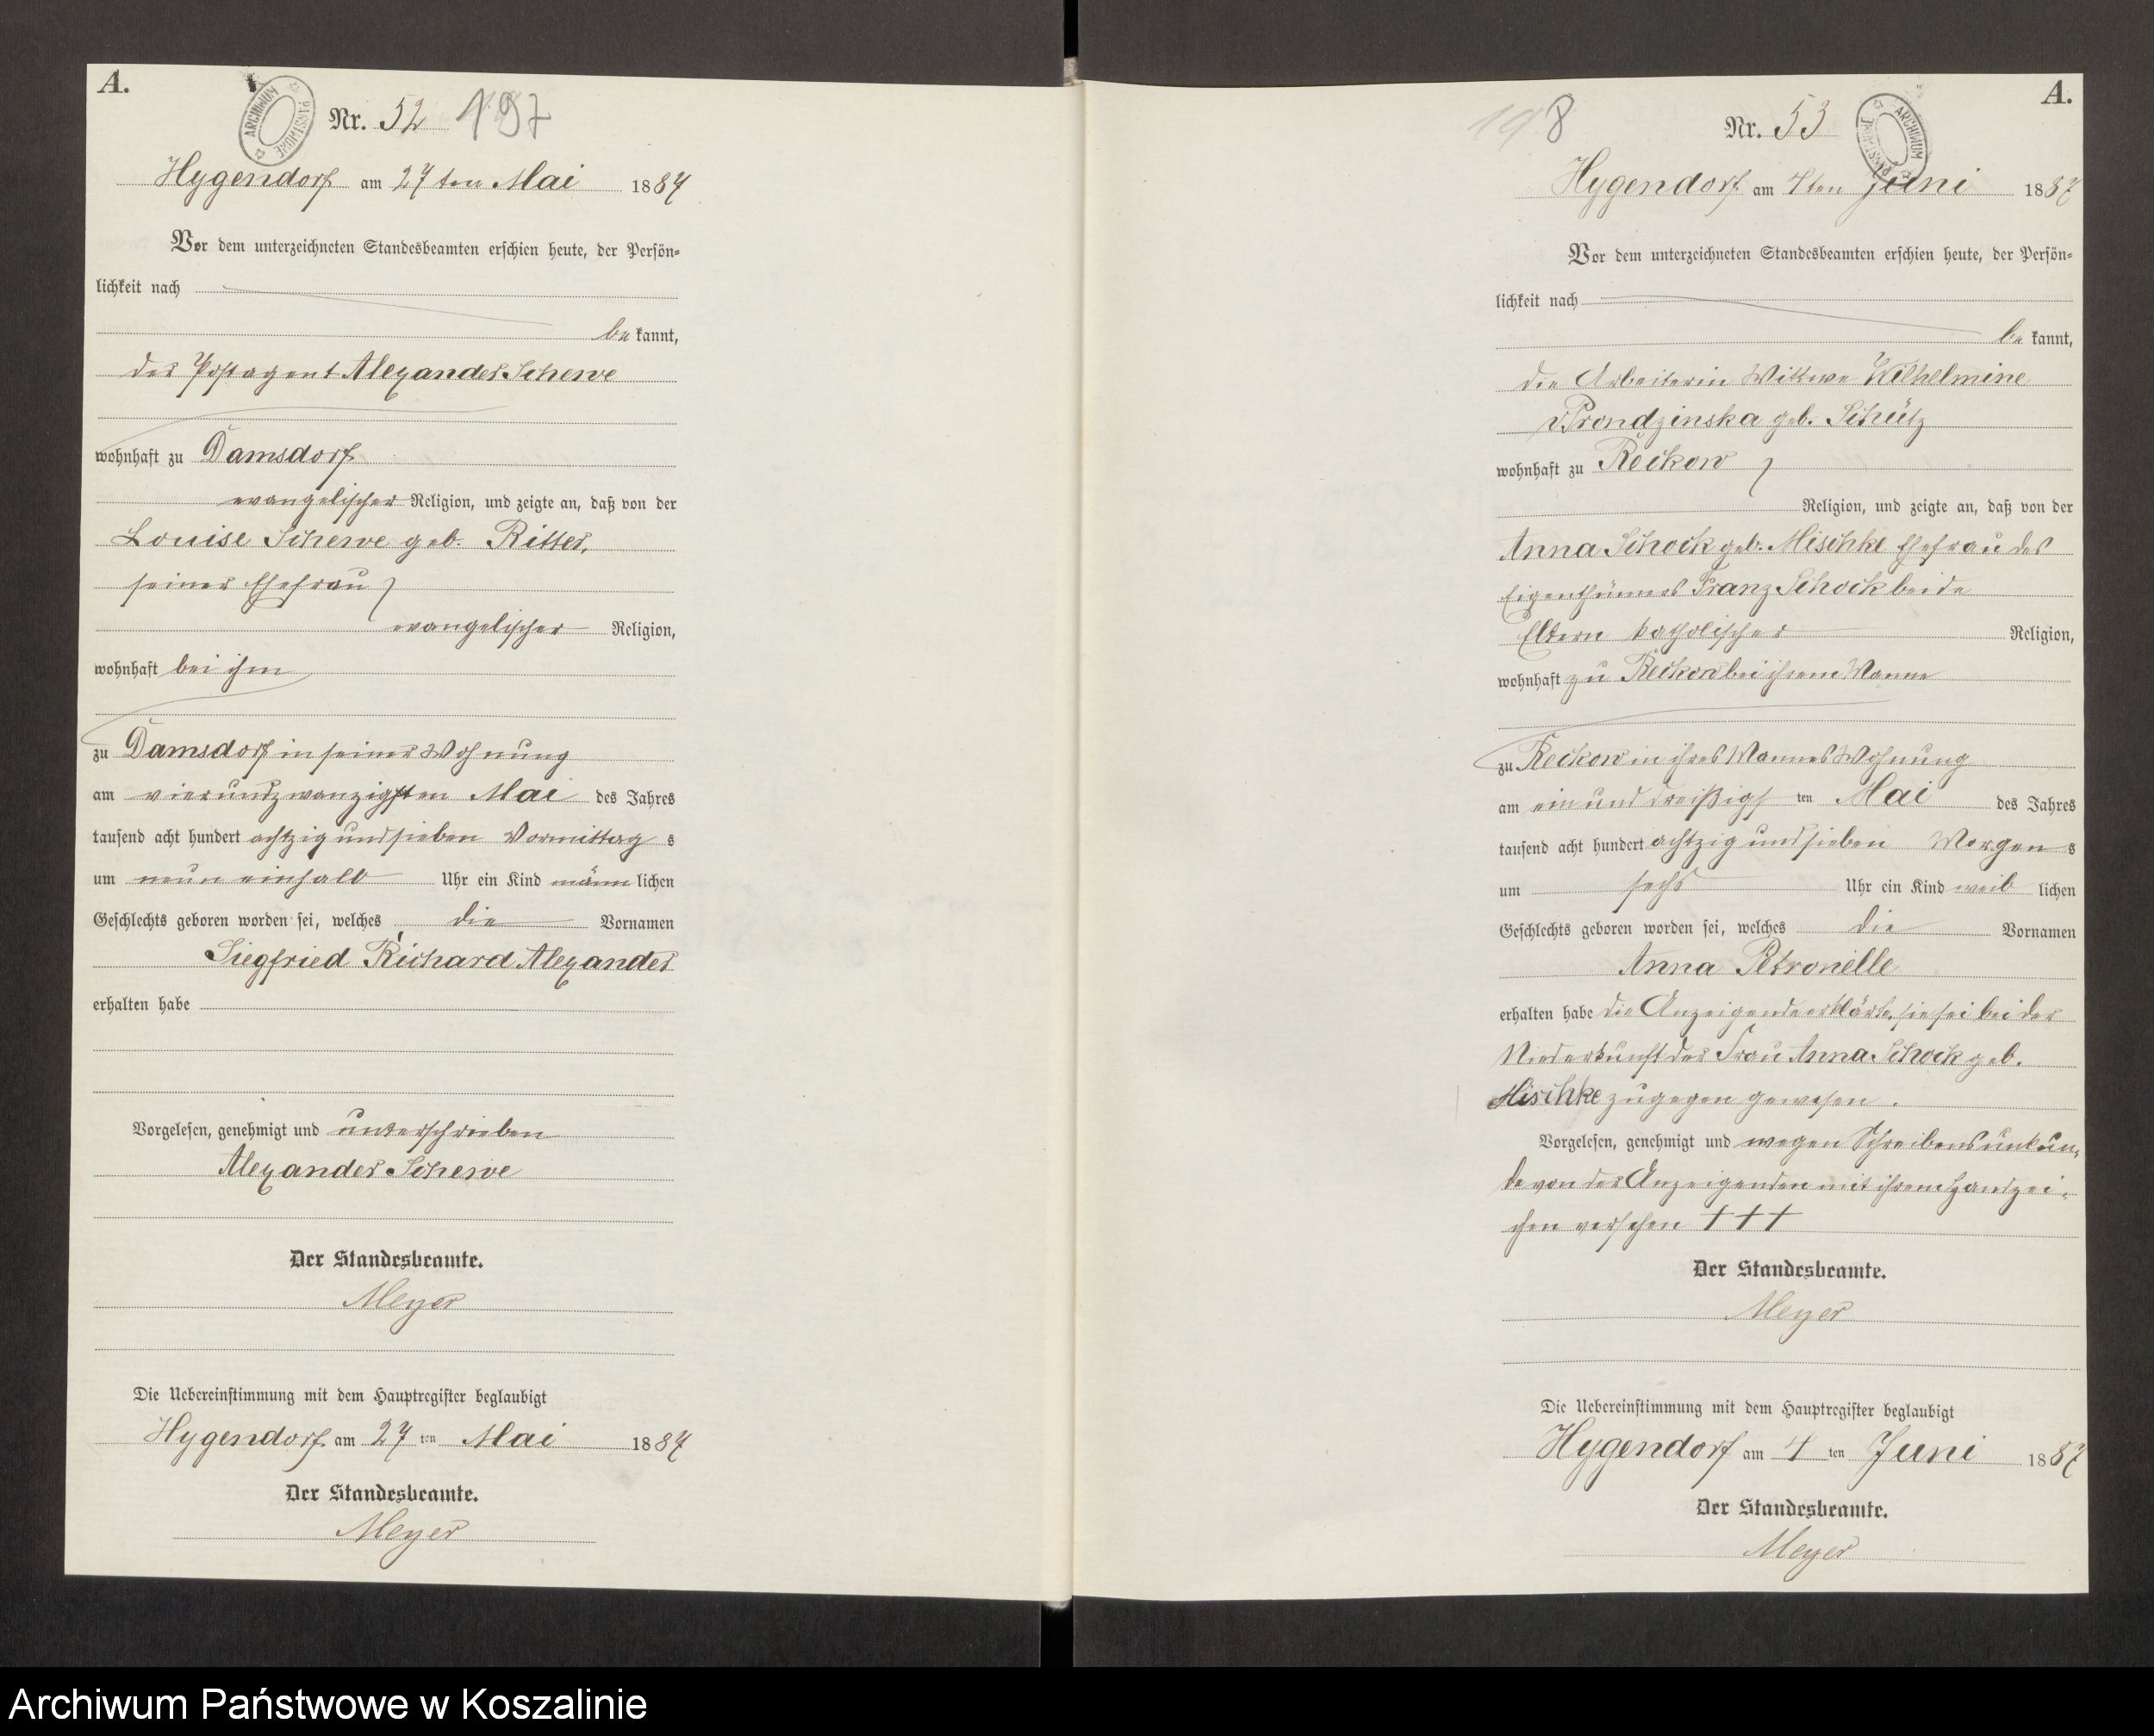 A.
ARCHIWUM PAŃSTWOWE
Nr. 52 197
Hygendorf am 27ten Mai 1887
Vor dem unterzeichneten Standesbeamten erschien heute, der Persön-
lichkeit nach
be kannt,
der Postagent Alexander Schewe
wohnhaft zu Damsdorf
evangelischer Religion, und zeigte an, daß von der
Louise Schewe geb. Ritter,
seiner Ehefrau
evangelischer Religion,
wohnhaft bei ihm
zu Damsdorf in seiner Wohnung
am vierundzwanzigsten Mai des Jahres
tausend acht hundert achtzig und sieben Vormittag s
um neun einhalb Uhr ein Kind männ lichen
Geschlechts geboren worden sei, welches die Vornamen
Siegfried Richard Alexander
erhalten habe
Vorgelesen, genehmigt und unterschrieben
Alexander Schewe
Der Standesbeamte.
Meyer
Die Uebereinstimmung mit dem Hauptregister beglaubigt
Hygendorf am 27 ten Mai 1887
Der Standesbeamte.
Meyer
A.
198
Nr. 53
ARCHIWUM PAŃSTWOWE
Hygendorf am 4ten Juni 1887
Vor dem unterzeichneten Standesbeamten erschien heute, der Persön-
lichkeit nach
be kannt,
die Arbeiterin Wittwe Wilhelmine
vProndzinska geb. Schütz
wohnhaft zu Reckow
Religion, und zeigte an, daß von der
Anna Schock geb. Mischke Ehefrau des
Eigenthümers Franz Schock beide
Eltern katholischer Religion,
wohnhaft zu Reckow bei ihrem Manne
zu Reckow in ihres Mannes Wohnung
am ein und dreißigs ten Mai des Jahres
tausend acht hundert achtzig und sieben Morgen s
um sechs Uhr ein Kind weib lichen
Geschlechts geboren worden sei, welches die Vornamen
Anna Petronelle
erhalten habe die Anzeigende erklärte, sie sei bei der
Niederkunft der Frau Anna Schock geb.
Mischke zugegen gewesen.
Vorgelesen, genehmigt und wegen Schreibensunkun-
de von der Anzeigenden mit ihrem Handzei-
chen versehen +++
Der Standesbeamte.
Meyer
Die Uebereinstimmung mit dem Hauptregister beglaubigt
Hygendorf am 4 ten Juni 1887
Der Standesbeamte.
Meyer
Archiwum Państwowe w Koszalinie